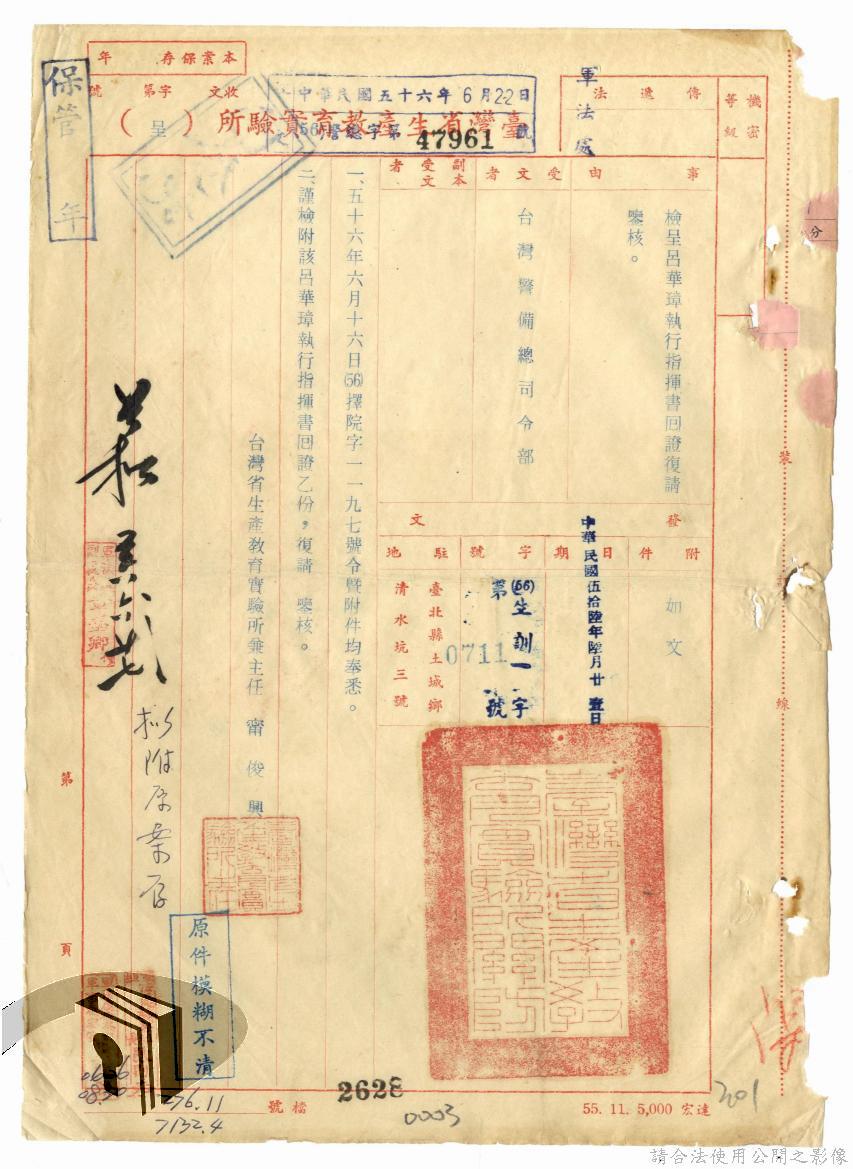 機密
等級
傳遞法
軍法處
臺灣省生產教育實驗所(呈)
本案保存 年
保管 年
收文 字第 號
中華民國五十六年6月22日
(56)警總字第47961號
事由
檢呈呂華璋執行指揮書回證復請
鑒核。
受文者
台灣警備總司令部
副本
受文者
發文
附件
如文
日期
中華民國伍拾陸年陸月廿壹日
字號
(56)生訓一字
第0711號
駐地
臺北縣土城鄉
清水坑三號
一、五十六年六月十六日(56)擇院字一一九七號令暨附件均奉悉。
二、謹檢附該呂華璋執行指揮書回證乙份,復請 鑒核。
台灣省生產教育實驗所兼主任 甯俊興
擬附原案存
原件模糊不清
裝
訂
線
分
第
頁
檔號
276.11
7132.4
2628
0003
55. 11. 5,000 宏達
201
請合法使用公開之影像